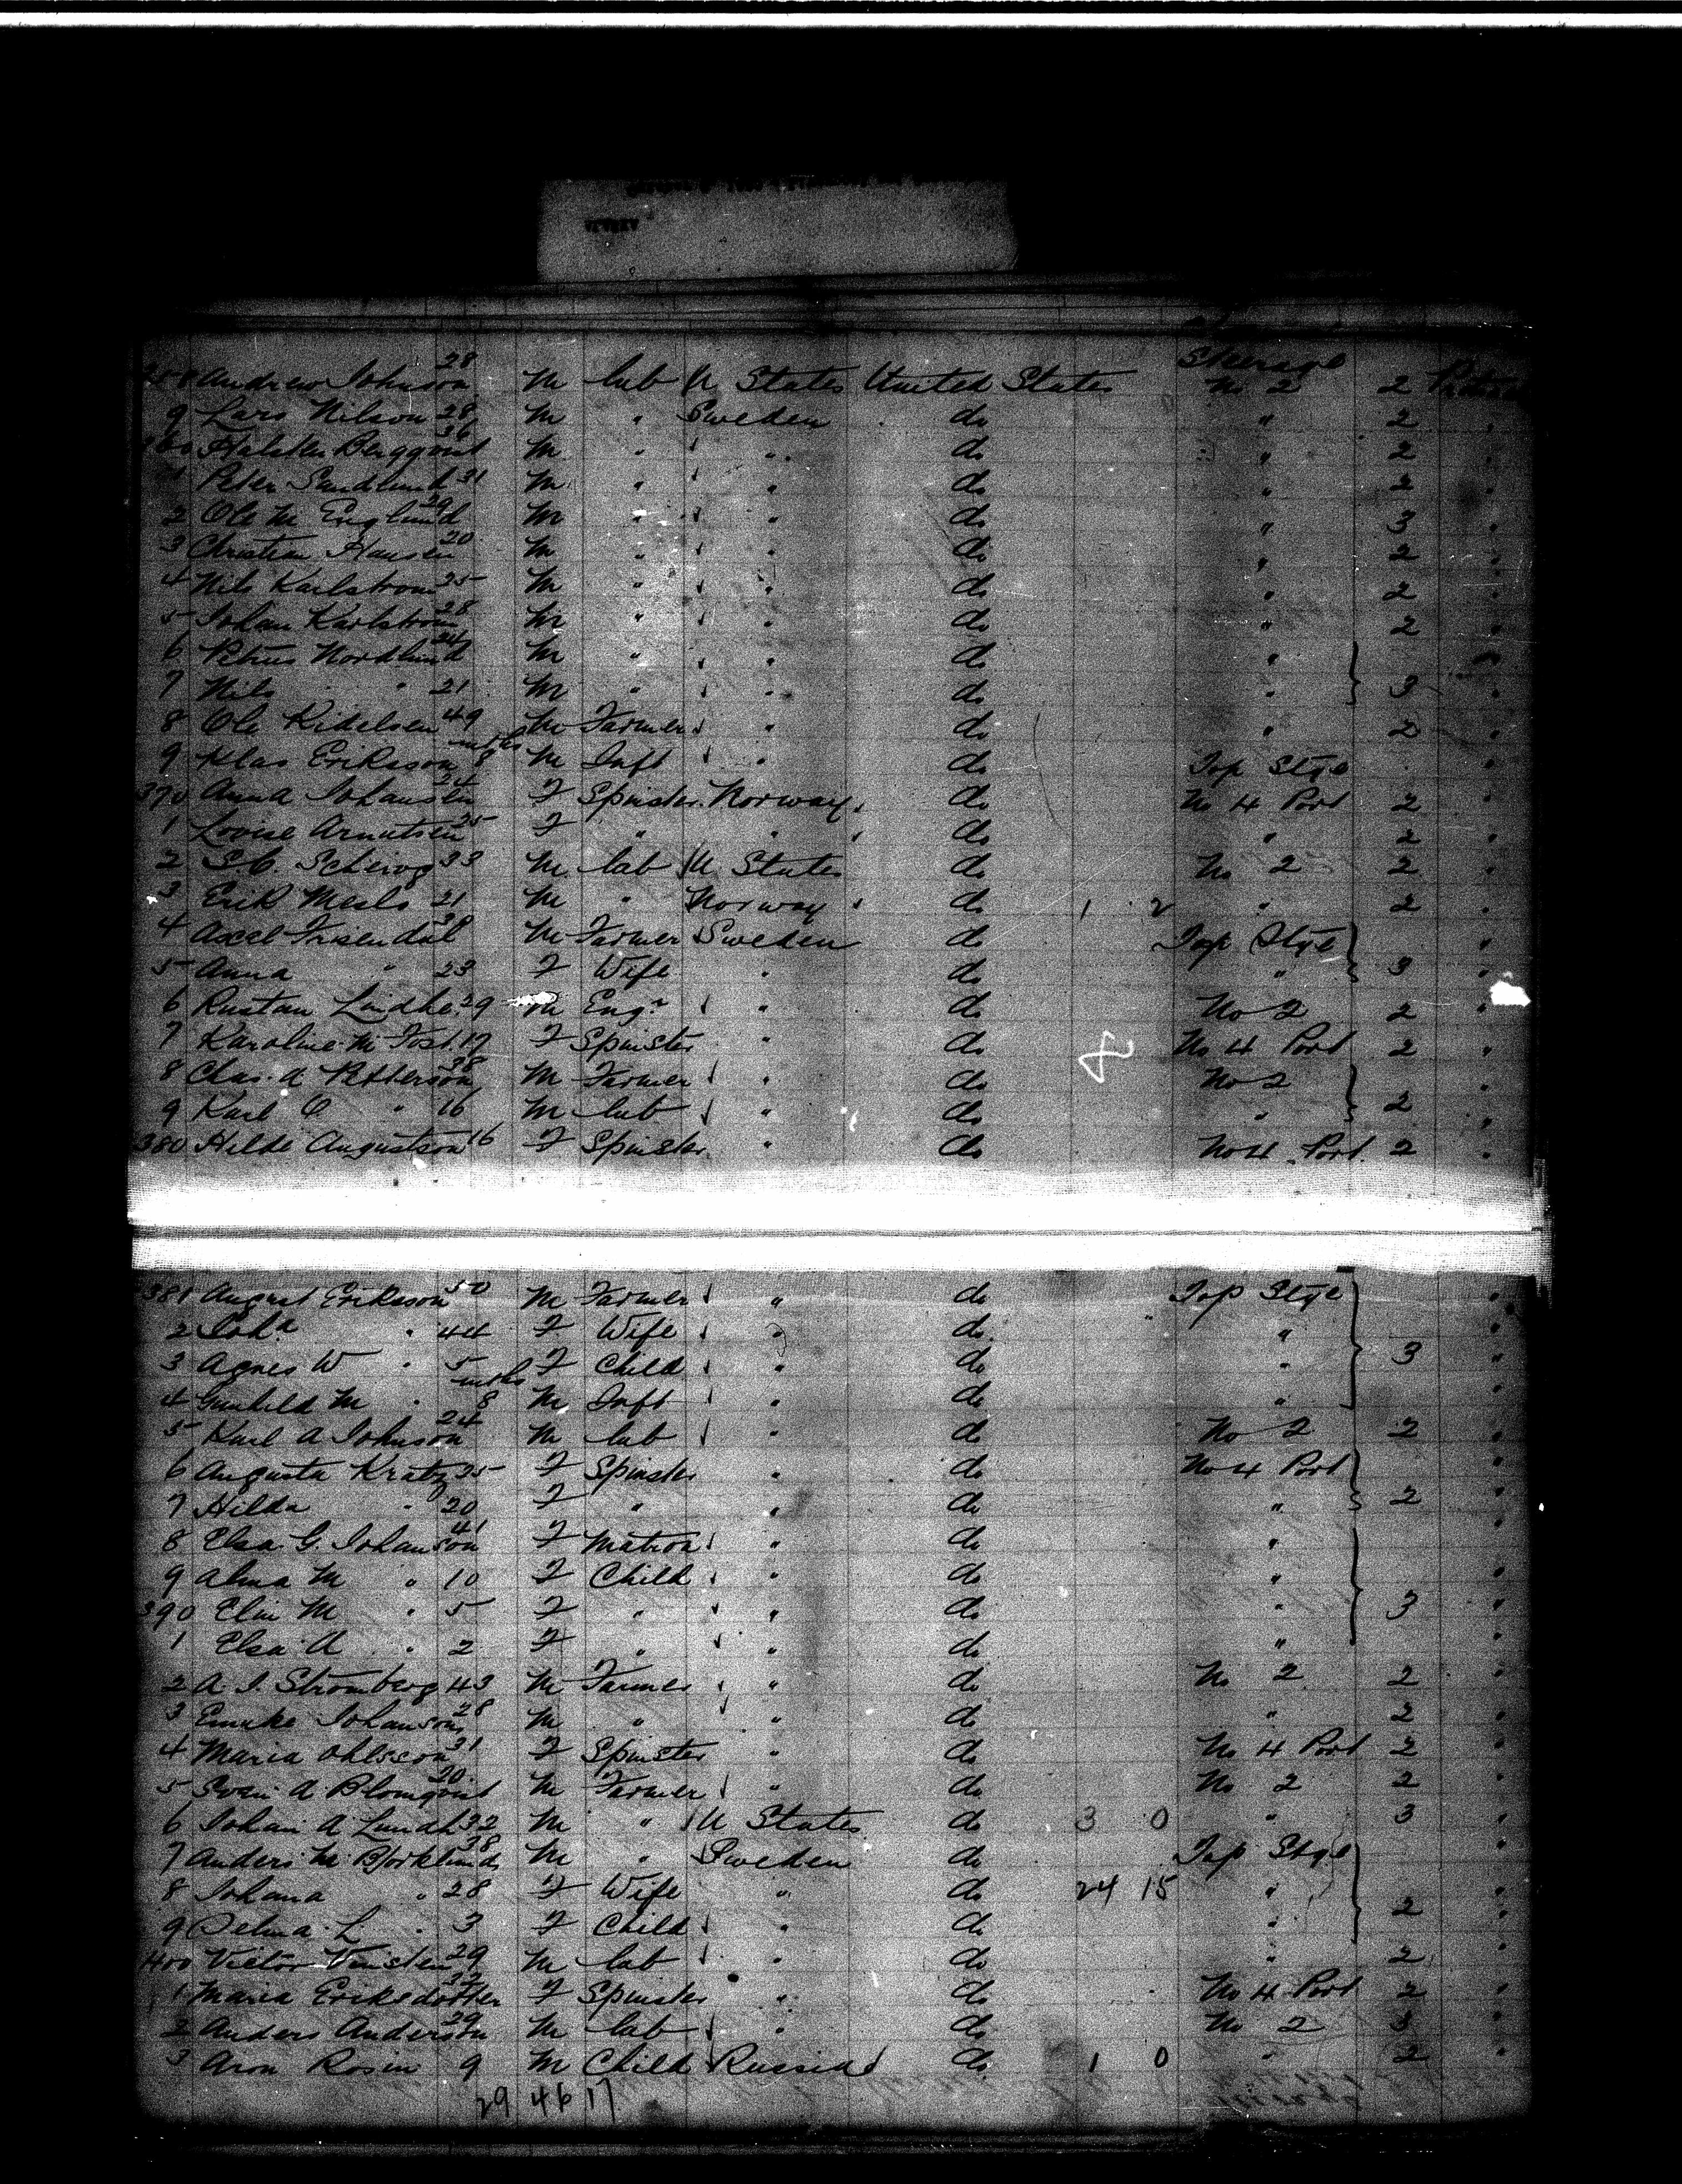 Steerage
Andrew Johnson 28 M lab U States United States No 2 2
9 Lars Nilson 28 M " Sweden do " 2
Bergqvist 36 M " " do " 2
1 Peter Sundlund 31 M " " do " 2
2 Ole M Englund 29 M " " do " 3
3 Christian Hansen 20 M " " do " 2
4 Nils Karlstrom 25 M " " do " 2
5 Johan Karlstrom 28 M " " do " 2
6 Petrus Nordlund 24 M " " do "
7 Nils " 21 M " " do " 3 "
8 Ole Kittelsen 49 M Farmer " do " 2 "
9 Klas Eriksson mths 8 M Inft " do Top Stge "
370 Anna Johansen 24 F Spinster Norway do No 4 Port 2 "
1 Lovise Arnutsen 25 F " " do " 2 "
2 33 M lab U States do No 2 2 "
3 Erik Meslo 21 M " Norway do 1 2 " 2 "
4 Axel Frisendal M Farmer Sweden do Top Stge "
5 Anna " 23 F Wife " do " 3 "
6 Lindhe 29 M Engr " do No 2 2 "
7 Karoline M 19 F Spinster " do No 4 Port 2 "
8 Chas. A Petterson 38 M Farmer " do No 2 "
9 Karl O " 16 M lab " do " 2 "
380 Hilde Augustson 16 F Spinster " do No 4 Port 2 "
381 August Eriksson 50 M Farmer " do Top Stge "
2 Joha " 44 F Wife " do " "
3 Agnes W " 5 F Child " do " 3 "
4 Gunhild M " mths 8 M Inft " do " "
5 Karl A Johnson 24 M lab " do No 2 2 "
6 Augusta Kratz 25 F Spinster " do No 4 Port "
7 Hilda " 20 F " " do " 2 "
8 Elsa G. Johanson 41 F Matron " do " "
9 Alma M " 10 F Child " do " "
390 Elin M " 5 F " " do " 3 "
1 Elsa A " 2 F " " do " "
2 A. I. Stromberg 43 M Farmer " do No 2 2 "
3 Johanson 28 M " " do " 2 "
4 Maria Ohlsson 31 F Spinster " do No 4 Port 2 "
5 Sven A Blomqvist 20 M Farmer " do No 2 2 "
6 Johan A Lundh 32 M " U States do 3 0 " 3 "
7 Anders M Bjorklund 38 M " Sweden do Top Stge "
8 Johana " 28 F Wife " do 24 15 " "
9 Selma L " 3 F Child " do " 2 "
400 Victor 29 M lab " do " 2 "
1 Maria Eriksdotter 32 F Spinster " do No 4 Port 2 "
2 Anders Anderson 29 M lab " do No 2 3 "
3 Aron Rosin 9 M Child Russia do 1 0 " 2 "
29 46 17